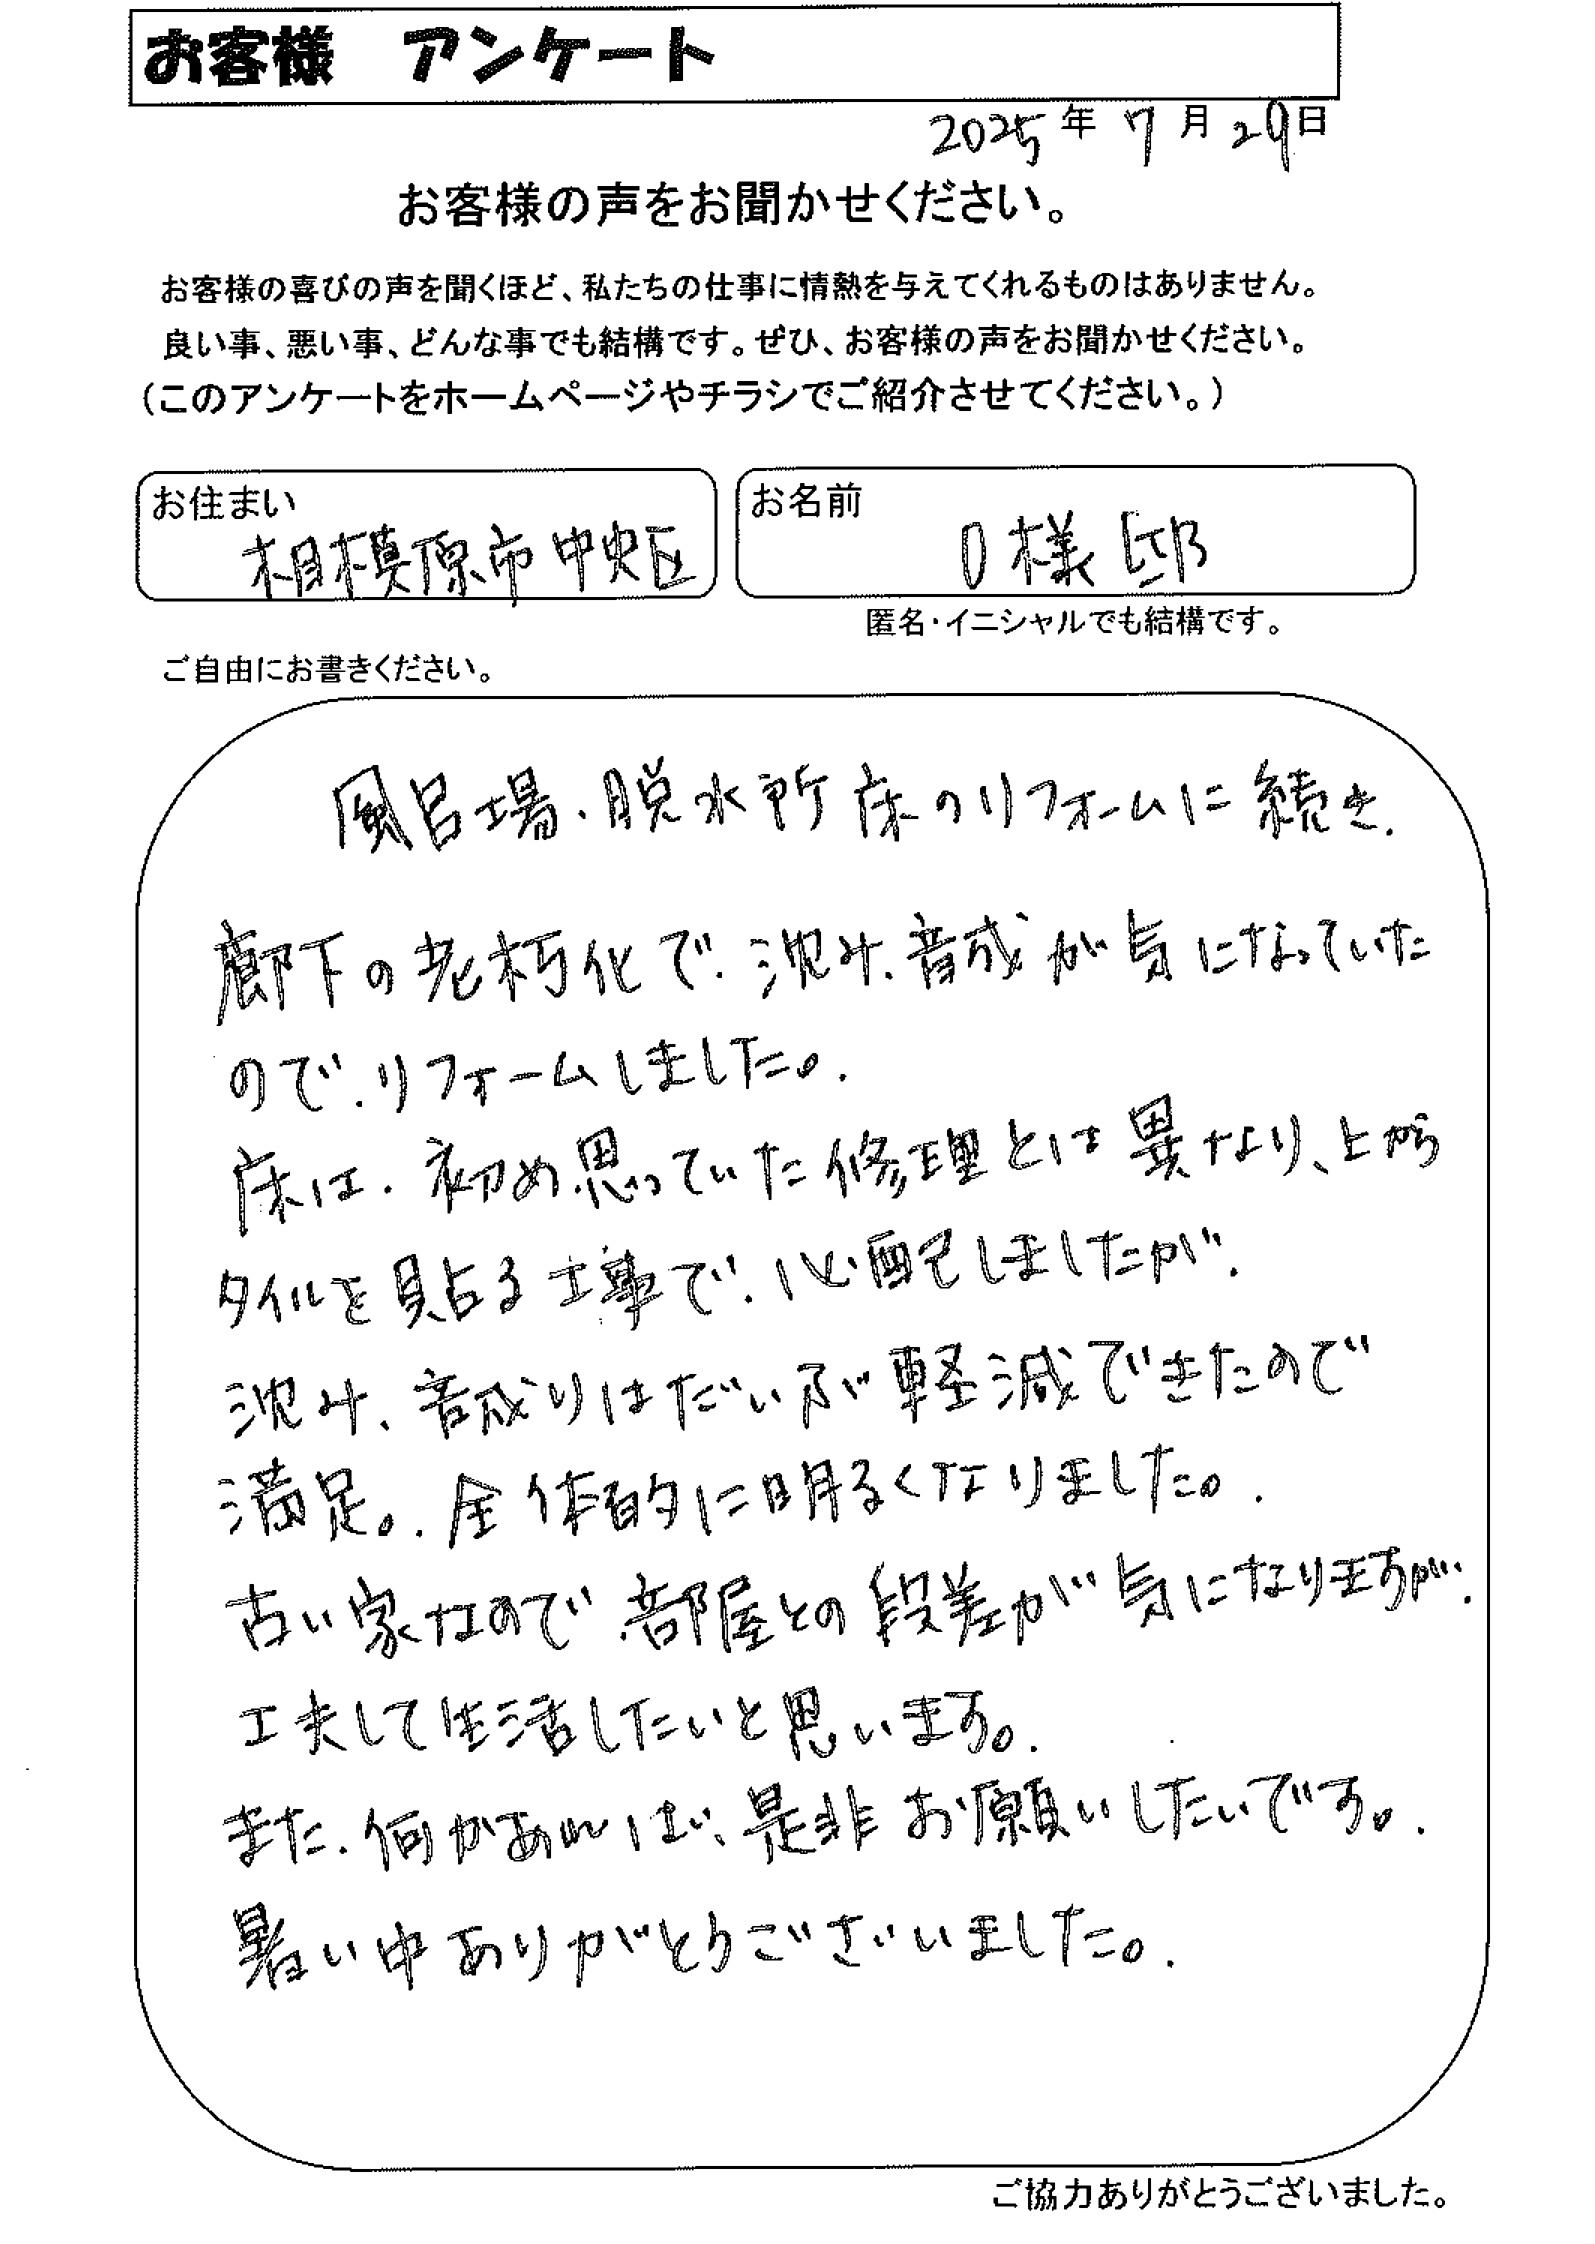 お客様 アンケート
2025年 7月 29日
お客様の声をお聞かせください。
お客様の喜びの声を聞くほど、私たちの仕事に情熱を与えてくれるものはありません。
良い事、悪い事、どんな事でも結構です。ぜひ、お客様の声をお聞かせください。
(このアンケートをホームページやチラシでご紹介させてください。)
お住まい
相模原市中央区
お名前
O様邸
匿名・イニシャルでも結構です。
ご自由にお書きください。
風呂場・脱水所床のリフォームに続き、
廊下の老朽化で、沈み、音成が気になっていた
ので、リフォームしました。
床は、初め思っていた修理とは異なり、上から
タイルを貼る工事で、心配しましたが、
沈み、音成りはだいぶ軽減できたので
満足。全体的に明るくなりました。
古い家なので、部屋との段差が気になりますが、
工夫して生活したいと思います。
また、何かあれば、是非お願いしたいです。
暑い中ありがとうございました。
ご協力ありがとうございました。